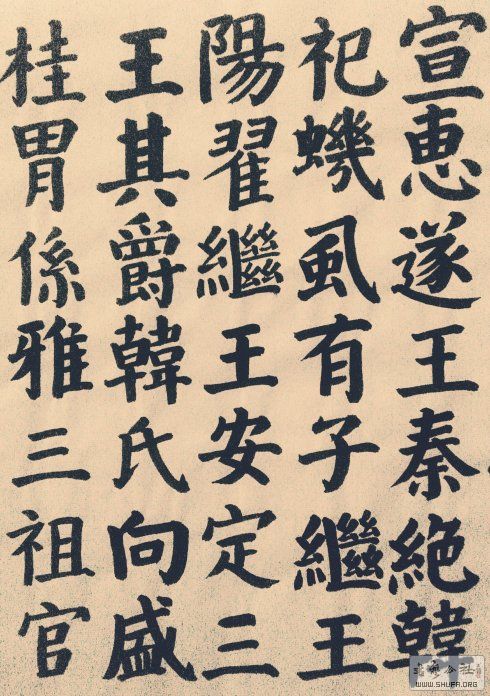 宣惠遂王秦絶韓
祀蟣風有子繼王
陽翟繼王安定三
王其爵韓氏向盛
桂胃係雅三祖官
WWW.SHUFA.ORG